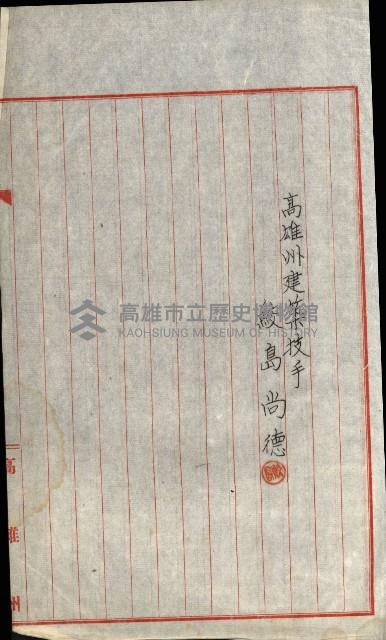 高雄州建築技手
鮫島尚德
高雄市立歷史博物館
KAOHSIUNG MUSEUM OF HISTORY
高雄州